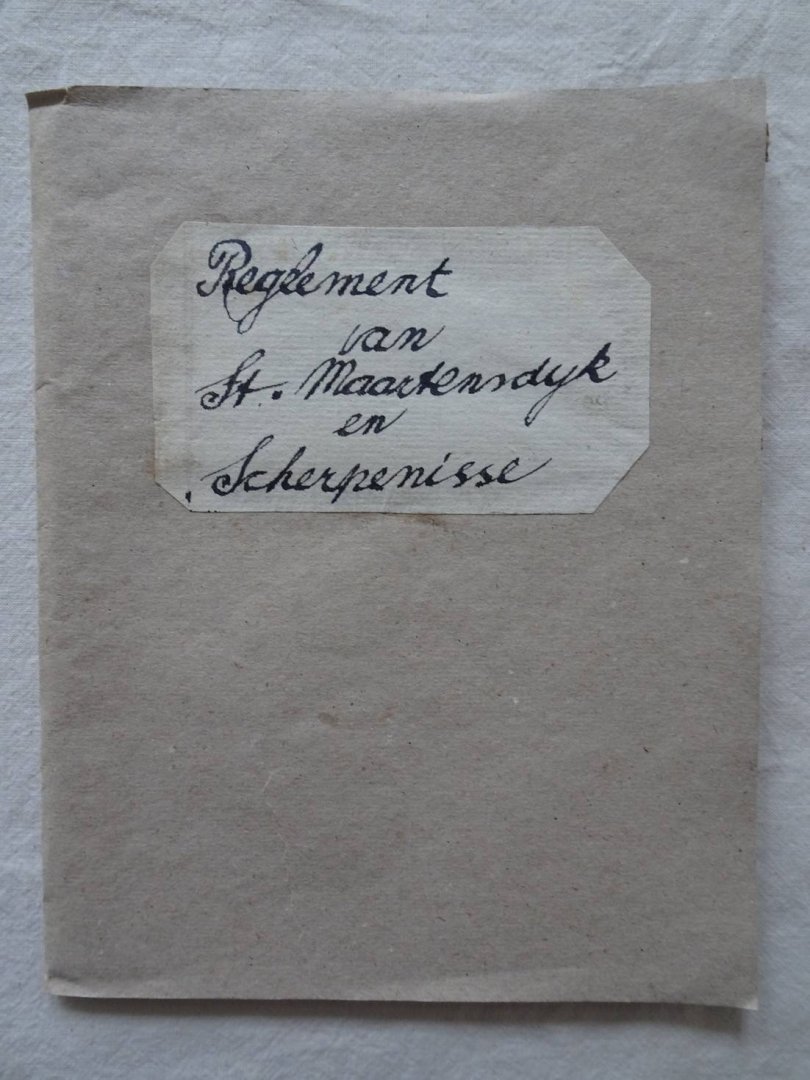 Reglement
van
St. Maartensdyk
en
Scherpenisse